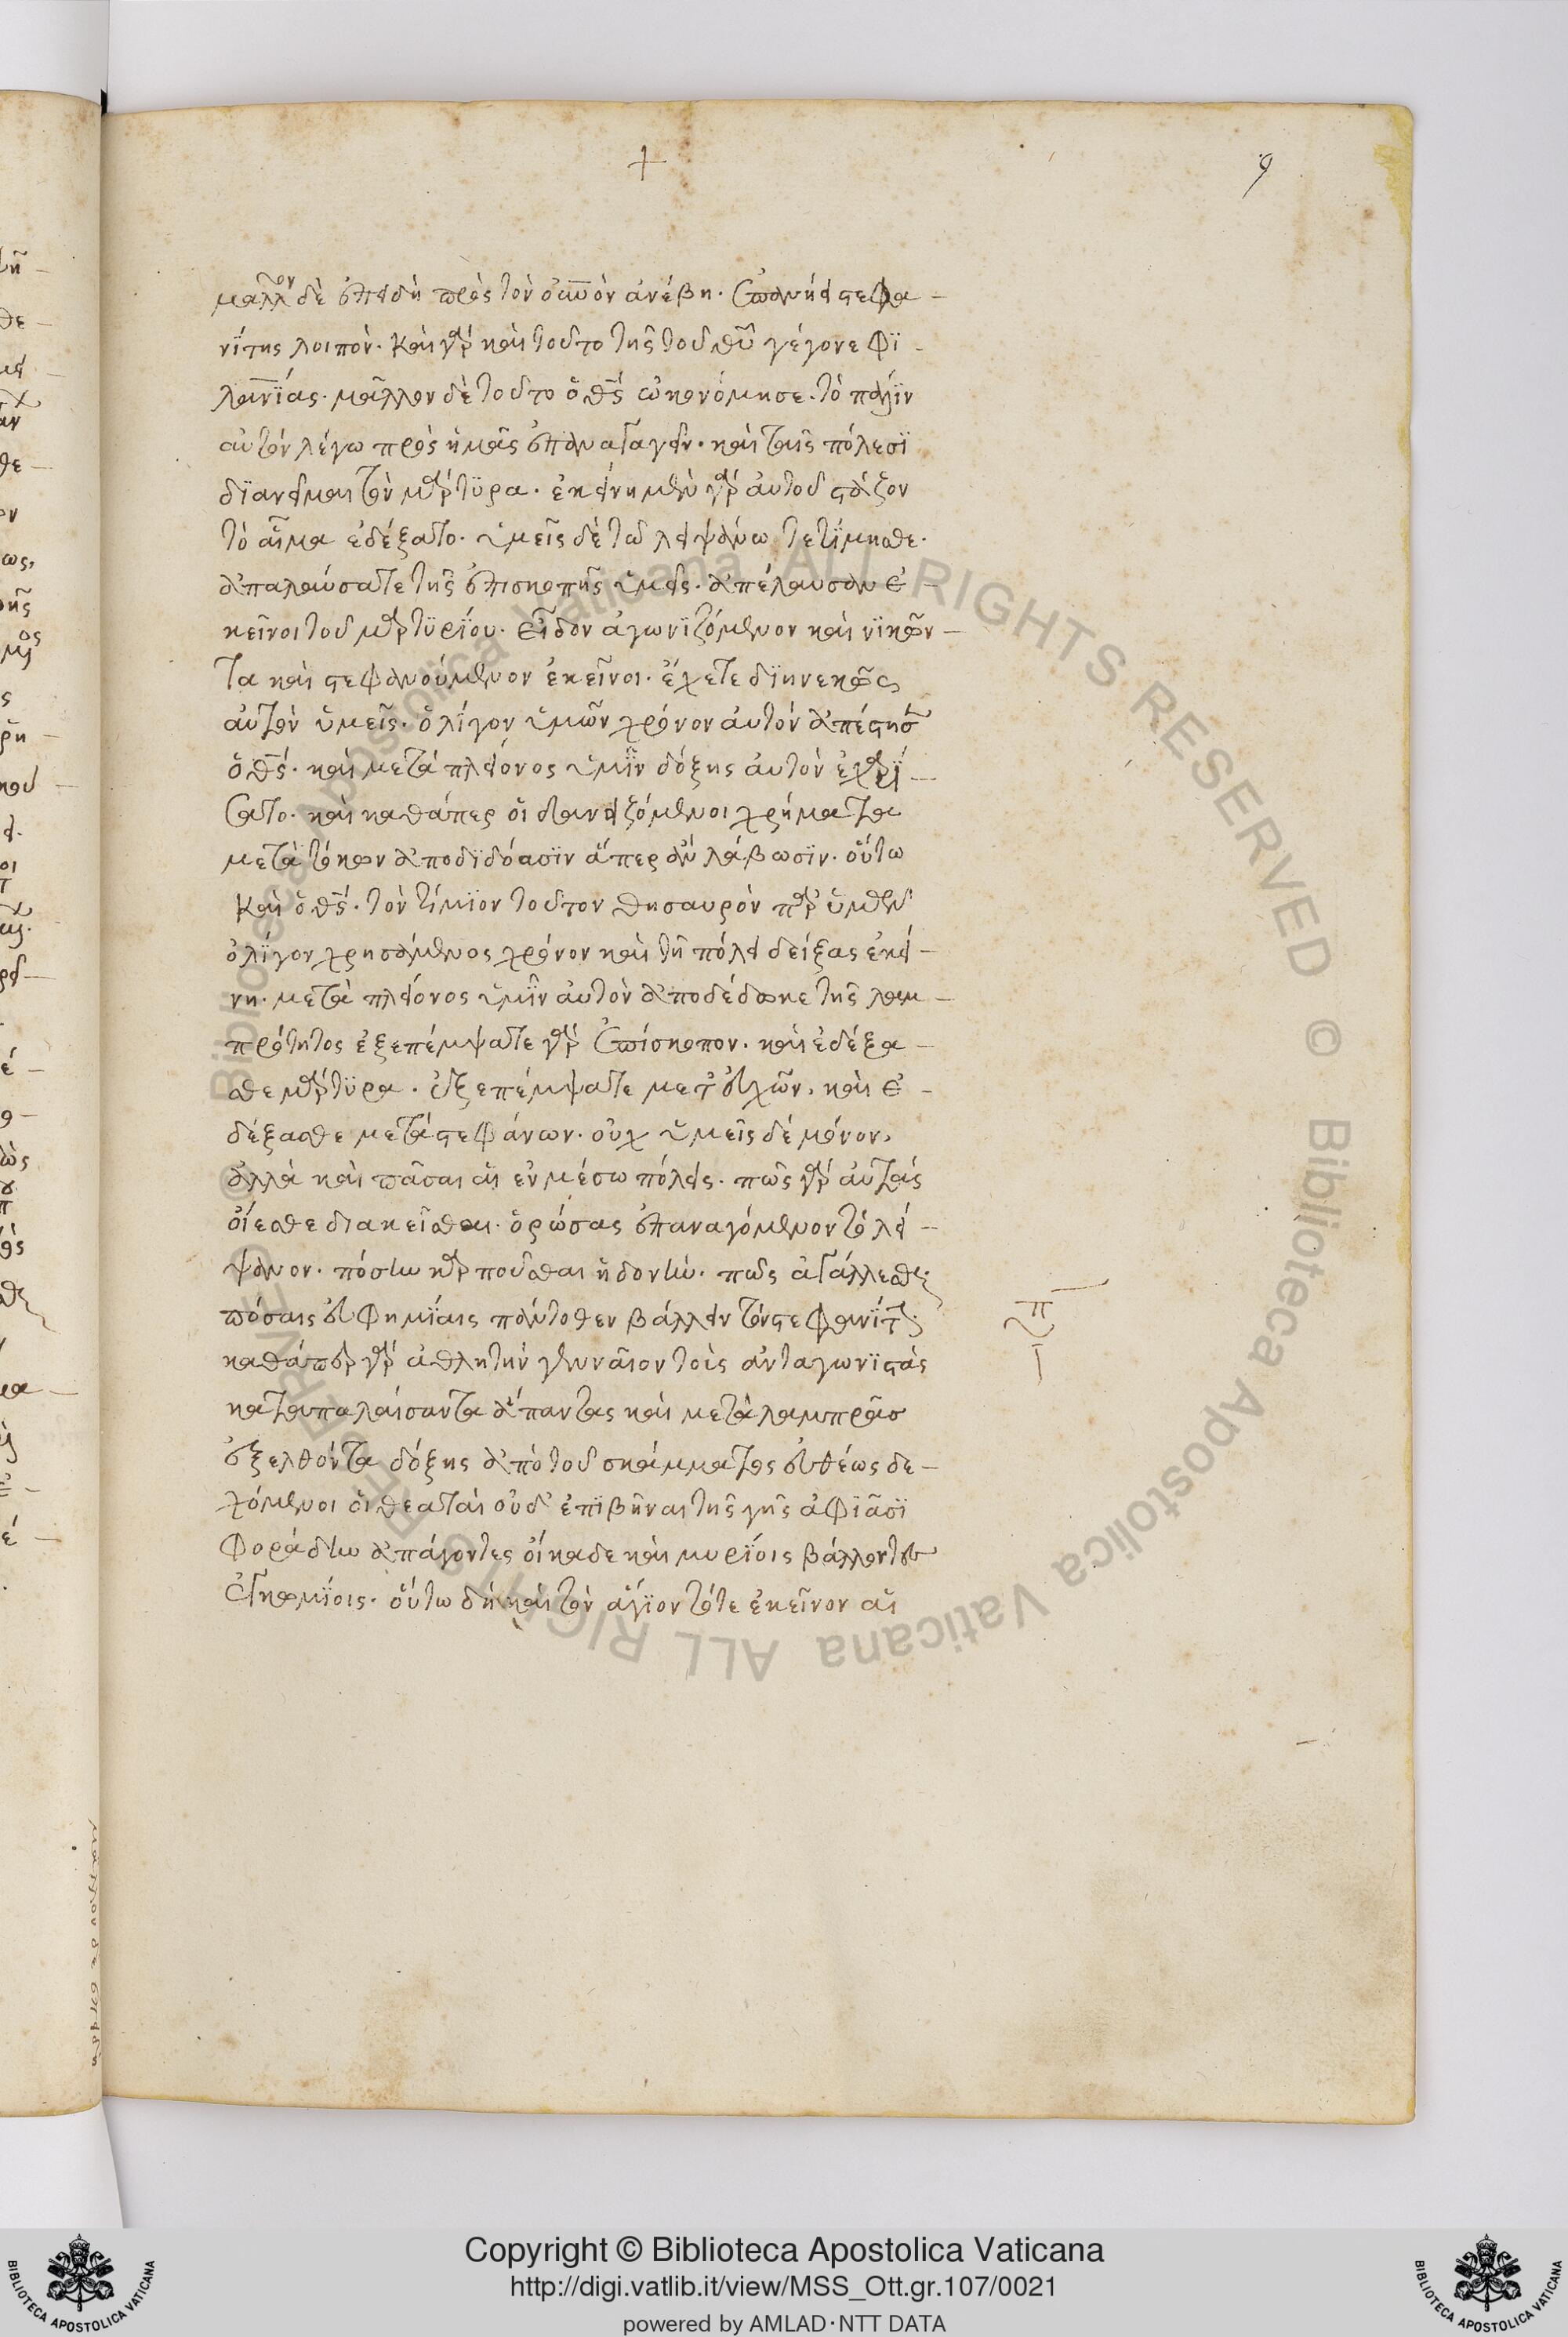 +
9
μαλλον δὲ ἐπειδὴ πρὸς τὸν οὐνὸν ἀνέβη. ἐπανήει στεφα-
νίτης λοιπόν. καὶ γὰρ καὶ τοῦτο τῆς τοῦ θῦ γέγονε φϊ-
λανΐας. μᾶλλον δὲ τοῦτο ὁ θς ὠκονόμησε. τὸ πάλϊν
αὐτὸν λέγω πρὸς ἡμᾶς ἐπαναγαγεῖν. καὶ ταῖς πόλεσϊ
δϊανεῖμαι τὸν μάρτϋρα. ἐκείνη μὲν γὰρ αὐτοῦ στάζον
τὸ αἷμα ἐδέξατο. ὑμεῖς δὲ τῶ λειψάνω τετίμησθε.
ἀπαλαύσατε τῆς ἐπισκοπῆς ὑμεῖς. ἀπέλαυσαν ἐ-
κεῖνοι τοῦ μαρτϋρΐου. εἶδον ἀγωνϊζόμενον καὶ νϊκῶν-
τα καὶ στεφανούμενον ἐκεῖνοι. ἔχετε δϊηνεκῶς
αὐτὸν ὑμεῖς. ὀλίγον ὑμῶν χρόνον αὐτὸν ἀπέστησ
ὁ θς. καὶ μετὰ πλείονος ὑμῖν δόξης αὐτὸν ἐχαρΐ-
σατο. καὶ καθάπερ οἱ δανειζόμενοι χρήματα
μετὰ τόκον ἀποδϊδόασϊν ἅπερ ἂν λάβωσϊν. οὕτω
καὶ ὁ θς. τὸν τίμϊον τοῦτον θησαυρὸν παρ ὑμῶν
ὀλΐγον χρησάμενος χρόνον καὶ τῆ πόλει δείξας ἐκεί-
νη. μετὰ πλείονος ὑμῖν αὐτὸν ἀποδέδωκε τῆς λαμ-
πρότητος ἐξεπέμψατε γὰρ ἐπίσκοπον. καὶ ἐδέξα-
σθε μάρτϋρα. ἐξεπέμψατε μετ εὐχῶν, καὶ ἐ-
δέξασθε μετὰ στεφάνων. οὐχ ὑμεῖς δὲ μόνον,
ἀλλὰ καὶ πᾶσαι αἱ ἐν μέσω πόλεις. πῶς γὰρ αὐτὰς
οἴεσθε διακεῖσθαι. ὁρώσας ἐπαναγόμενον τὸ λεί-
ψανον. πόσην καρποῦσθαι ἡδονήν. πῶς ἀγάλλεσθαι
πόσαις εὐφημΐαις πάντοθεν βάλλειν τὸν στεφανΐτην.
καθάπερ γὰρ ἀθλητὴν γενναῖον τοὺς ἀνταγωνϊστὰς
καταπαλαίσαντα ἅπαντας καὶ μετὰ λαμπρᾶσ
ἐξελθόντα δόξης ἀπὸ τοῦ σκάμματος εὐθέως δε-
χόμενοι οἱ θεαταὶ οὐδ' ἐπϊβῆναι τῆς γῆς ἀφϊᾶσϊ
φοράδην ἀπάγοντες οἴκαδε καὶ μυρΐοις βάλλοντες
ἐγκωμΐοις. οὕτω δὴ καὶ τὸν ἅγϊον τότε ἐκεῖνον αἱ
Copyright © Biblioteca Apostolica Vaticana
http://digi.vatlib.it/view/MSS_Ott.gr.107/0021
powered by AMLAD·NTT DATA